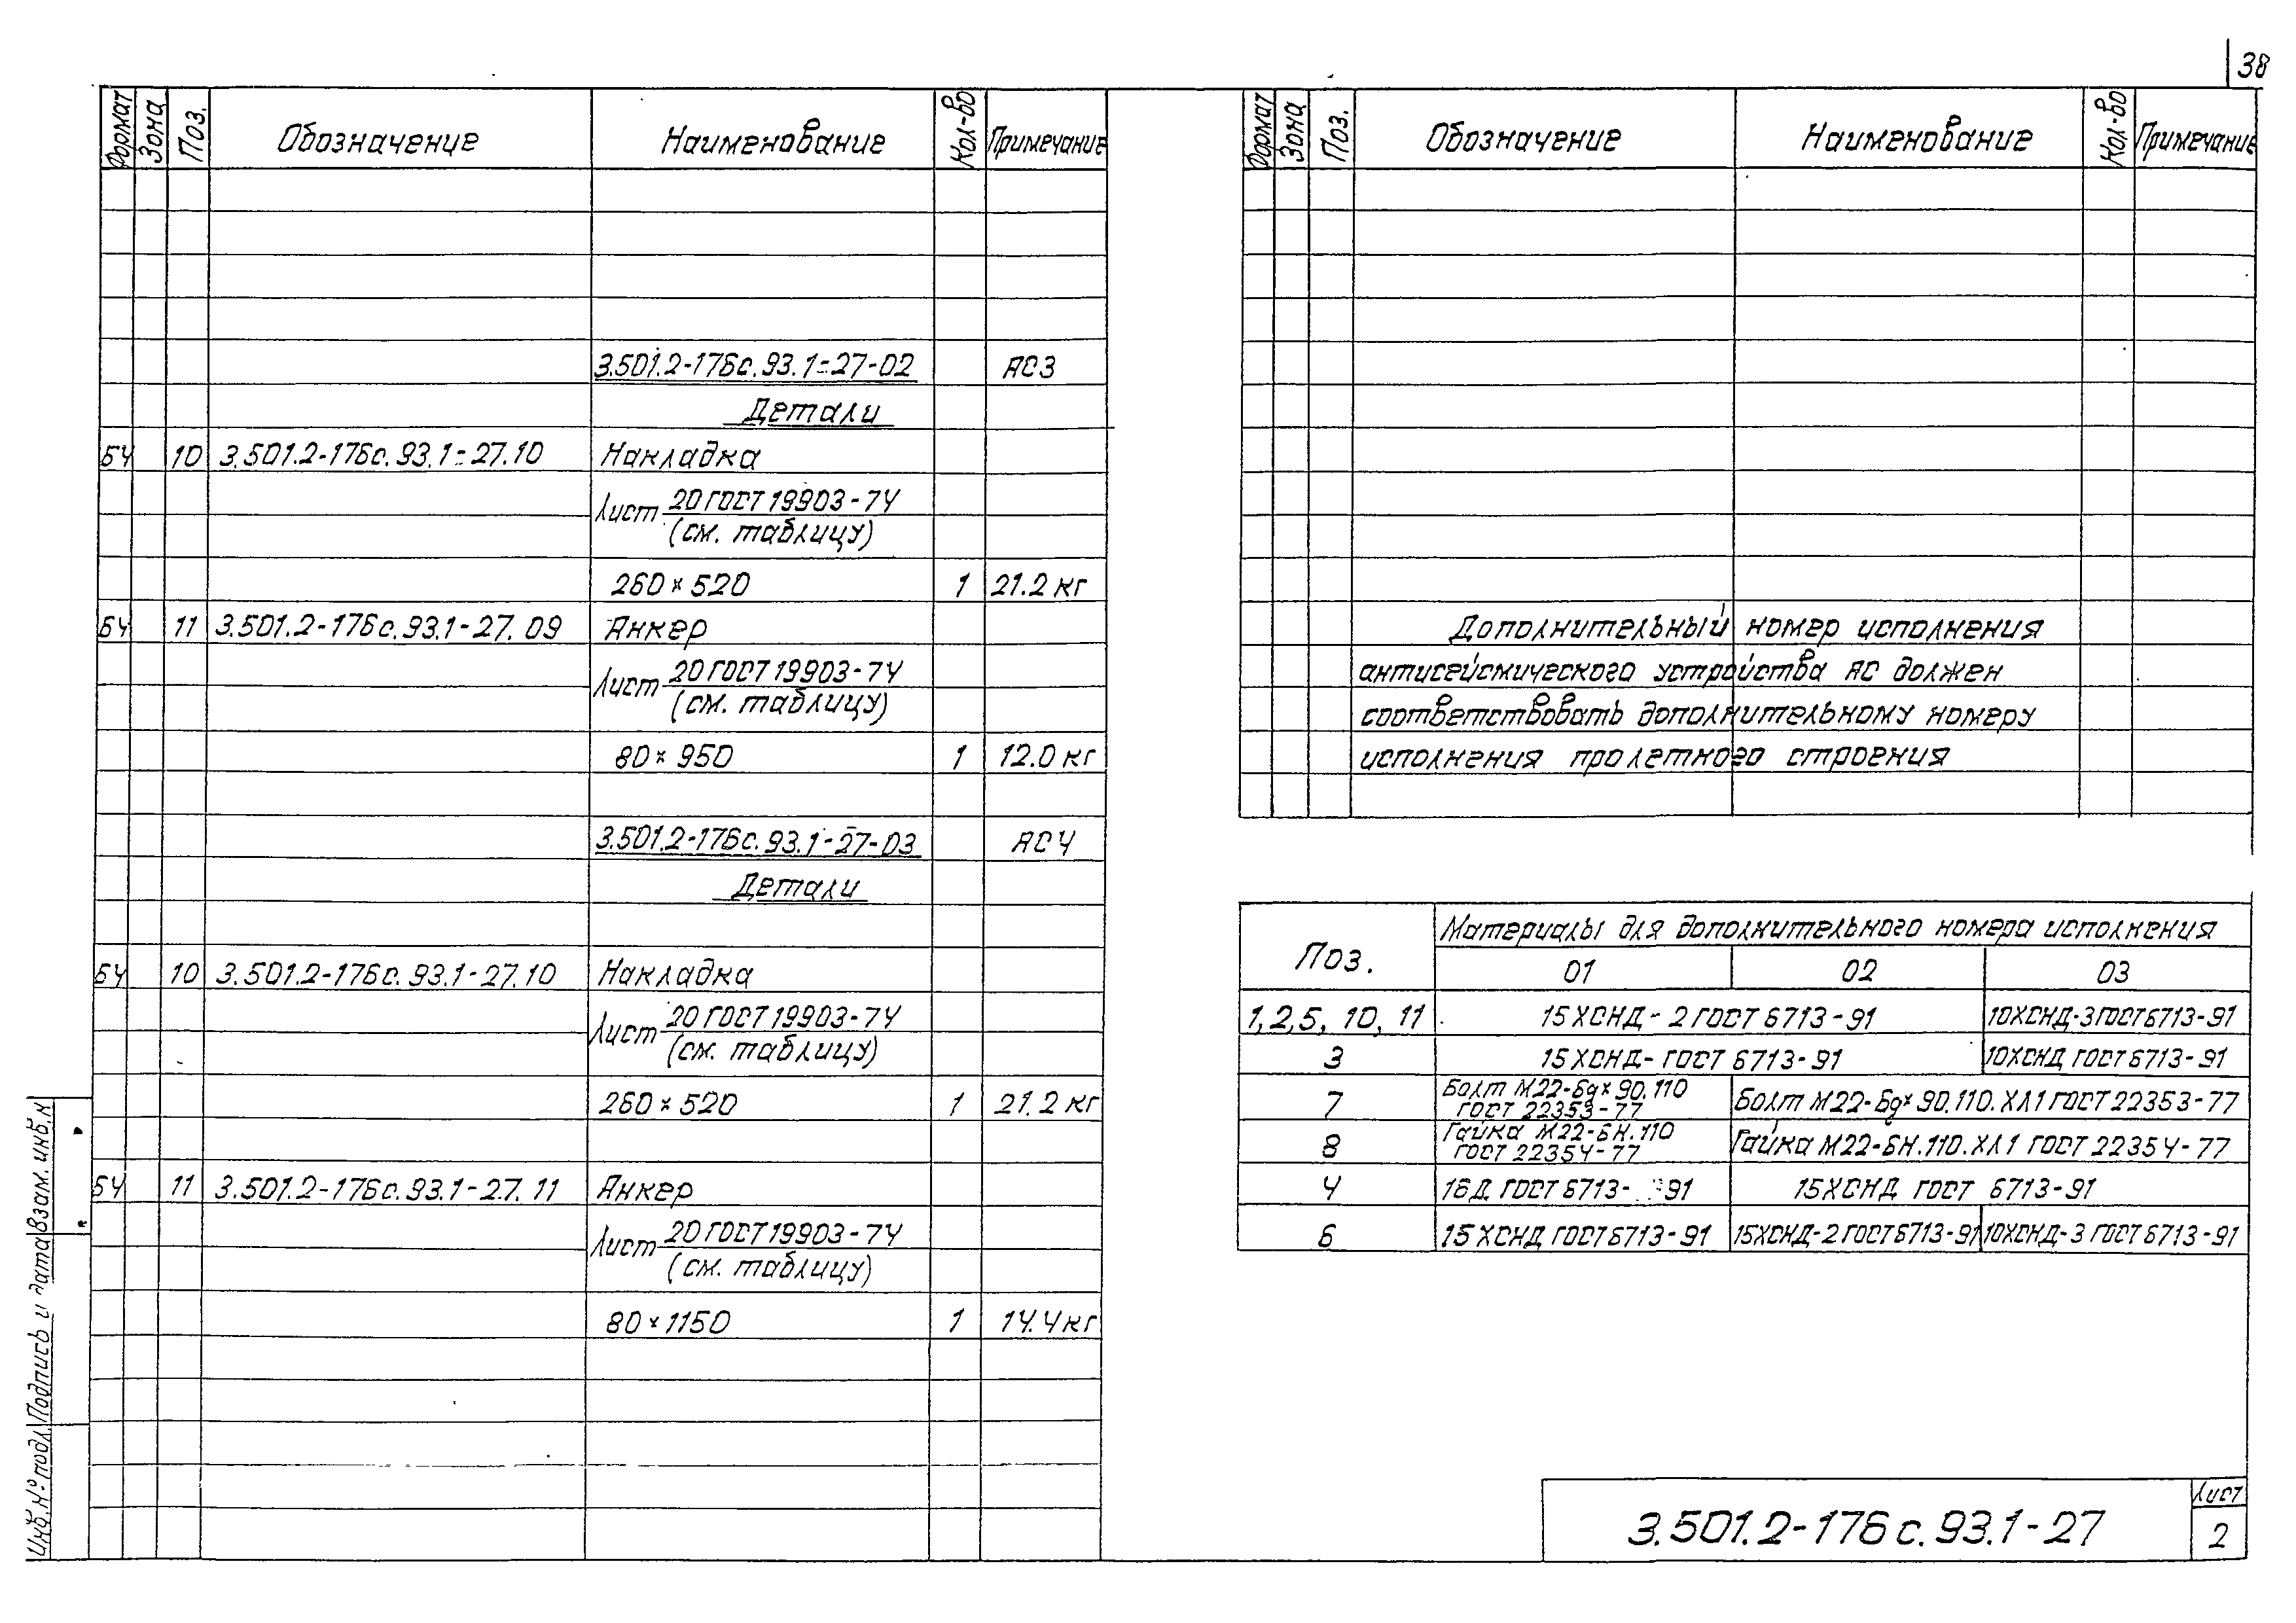 38
Формат Зона Поз. Обозначение Наименование Кол-во Примечание
3.501.2-176с.93.1-27-02 АС3
Детали
БЧ 10 3.501.2-176с.93.1-27.10 Накладка
Лист 20 ГОСТ 19903-74
(см. таблицу)
260×520 1 21.2 кг
БЧ 11 3.501.2-176с.93.1-27.09 Анкер
Лист 20 ГОСТ 19903-74
(см. таблицу)
80×950 1 12.0 кг
3.501.2-176с.93.1-27-03 АС4
Детали
БЧ 10 3.501.2-176с.93.1-27.10 Накладка
Лист 20 ГОСТ 19903-74
(см. таблицу)
260×520 1 21.2 кг
БЧ 11 3.501.2-176с.93.1-27.11 Анкер
Лист 20 ГОСТ 19903-74
(см. таблицу)
80×1150 1 14.4 кг
Формат Зона Поз. Обозначение Наименование Кол-во Примечание
Дополнительный номер исполнения
антисейсмического устройства АС должен
соответствовать дополнительному номеру
исполнения пролетного строения
Поз. Материалы для дополнительного номера исполнения
01 02 03
1,2,5, 10, 11 15ХСНД-2 ГОСТ 6713-91 10ХСНД-3 ГОСТ 6713-91
3 15ХСНД-ГОСТ 6713-91 10ХСНД ГОСТ 6713-91
7 Болт М22-6g×90.110
ГОСТ 22353-77 Болт М22-6g×90.110.ХЛ1 ГОСТ 22353-77
8 Гайка М22-6Н.110
ГОСТ 22354-77 Гайка М22-6Н.110.ХЛ1 ГОСТ 22354-77
4 16Д ГОСТ 6713-91 15ХСНД ГОСТ 6713-91
6 15ХСНД ГОСТ 6713-91 15ХСНД-2 ГОСТ 6713-91 10ХСНД-3 ГОСТ 6713-91
Инв.№ подл. Подпись и дата Взам. инв. №
3.501.2-176с.93.1-27
Лист
2